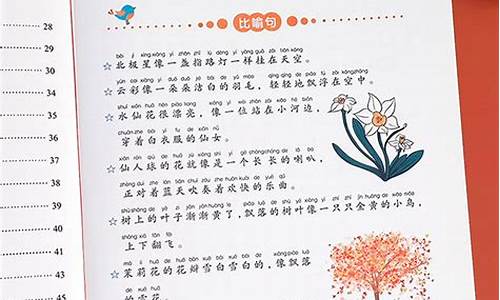 比喻句
28
29
30
34
35
36
37
39
40
41
45
běi jí xīng xiàng yì zhǎn zhǐ lù dēng yí yàng guà zài tiān kōng
☆北极星像一盏指路灯一样挂在天空。
yún cai xiàng yì duǒ duǒ jié bái de yǔ máo qīng qīng de piāo fú zài kōng zhōng
☆云彩像一朵朵洁白的羽毛，轻轻地飘浮在空中。
shuǐ xiān huā hěn piào liang xiàng yí wèi zhàn zài xiǎo hé biān
☆水仙花很漂亮，像一位站在小河边，
chuān zhe bái yī fu de xiān nǚ
穿着白衣服的仙女。
xiān rén qiú de huā jiù xiàng shì yí gè cháng cháng de lǎ ba
☆仙人球的花就像是一个长长的喇叭，
zhèng duì zhe lán tiān chuī zòu zhe huān kuài de yuè qǔ
正对着蓝天吹奏着欢快的乐曲。
shù shàng de yè zi jiàn jiàn huáng le piāo luò de shù yè xiàng yì zhī zhī jīn huáng de xiǎo niǎo
☆树上的叶子渐渐黄了，飘落的树叶像一只只金黄的小鸟，
shàng xià fān fēi
上下翻飞。
mò lì huā de huā bàn xuě bái xuě bái de xiàng piāo luò
☆茉莉花的花瓣雪白雪白的，像飘落
的雪花。